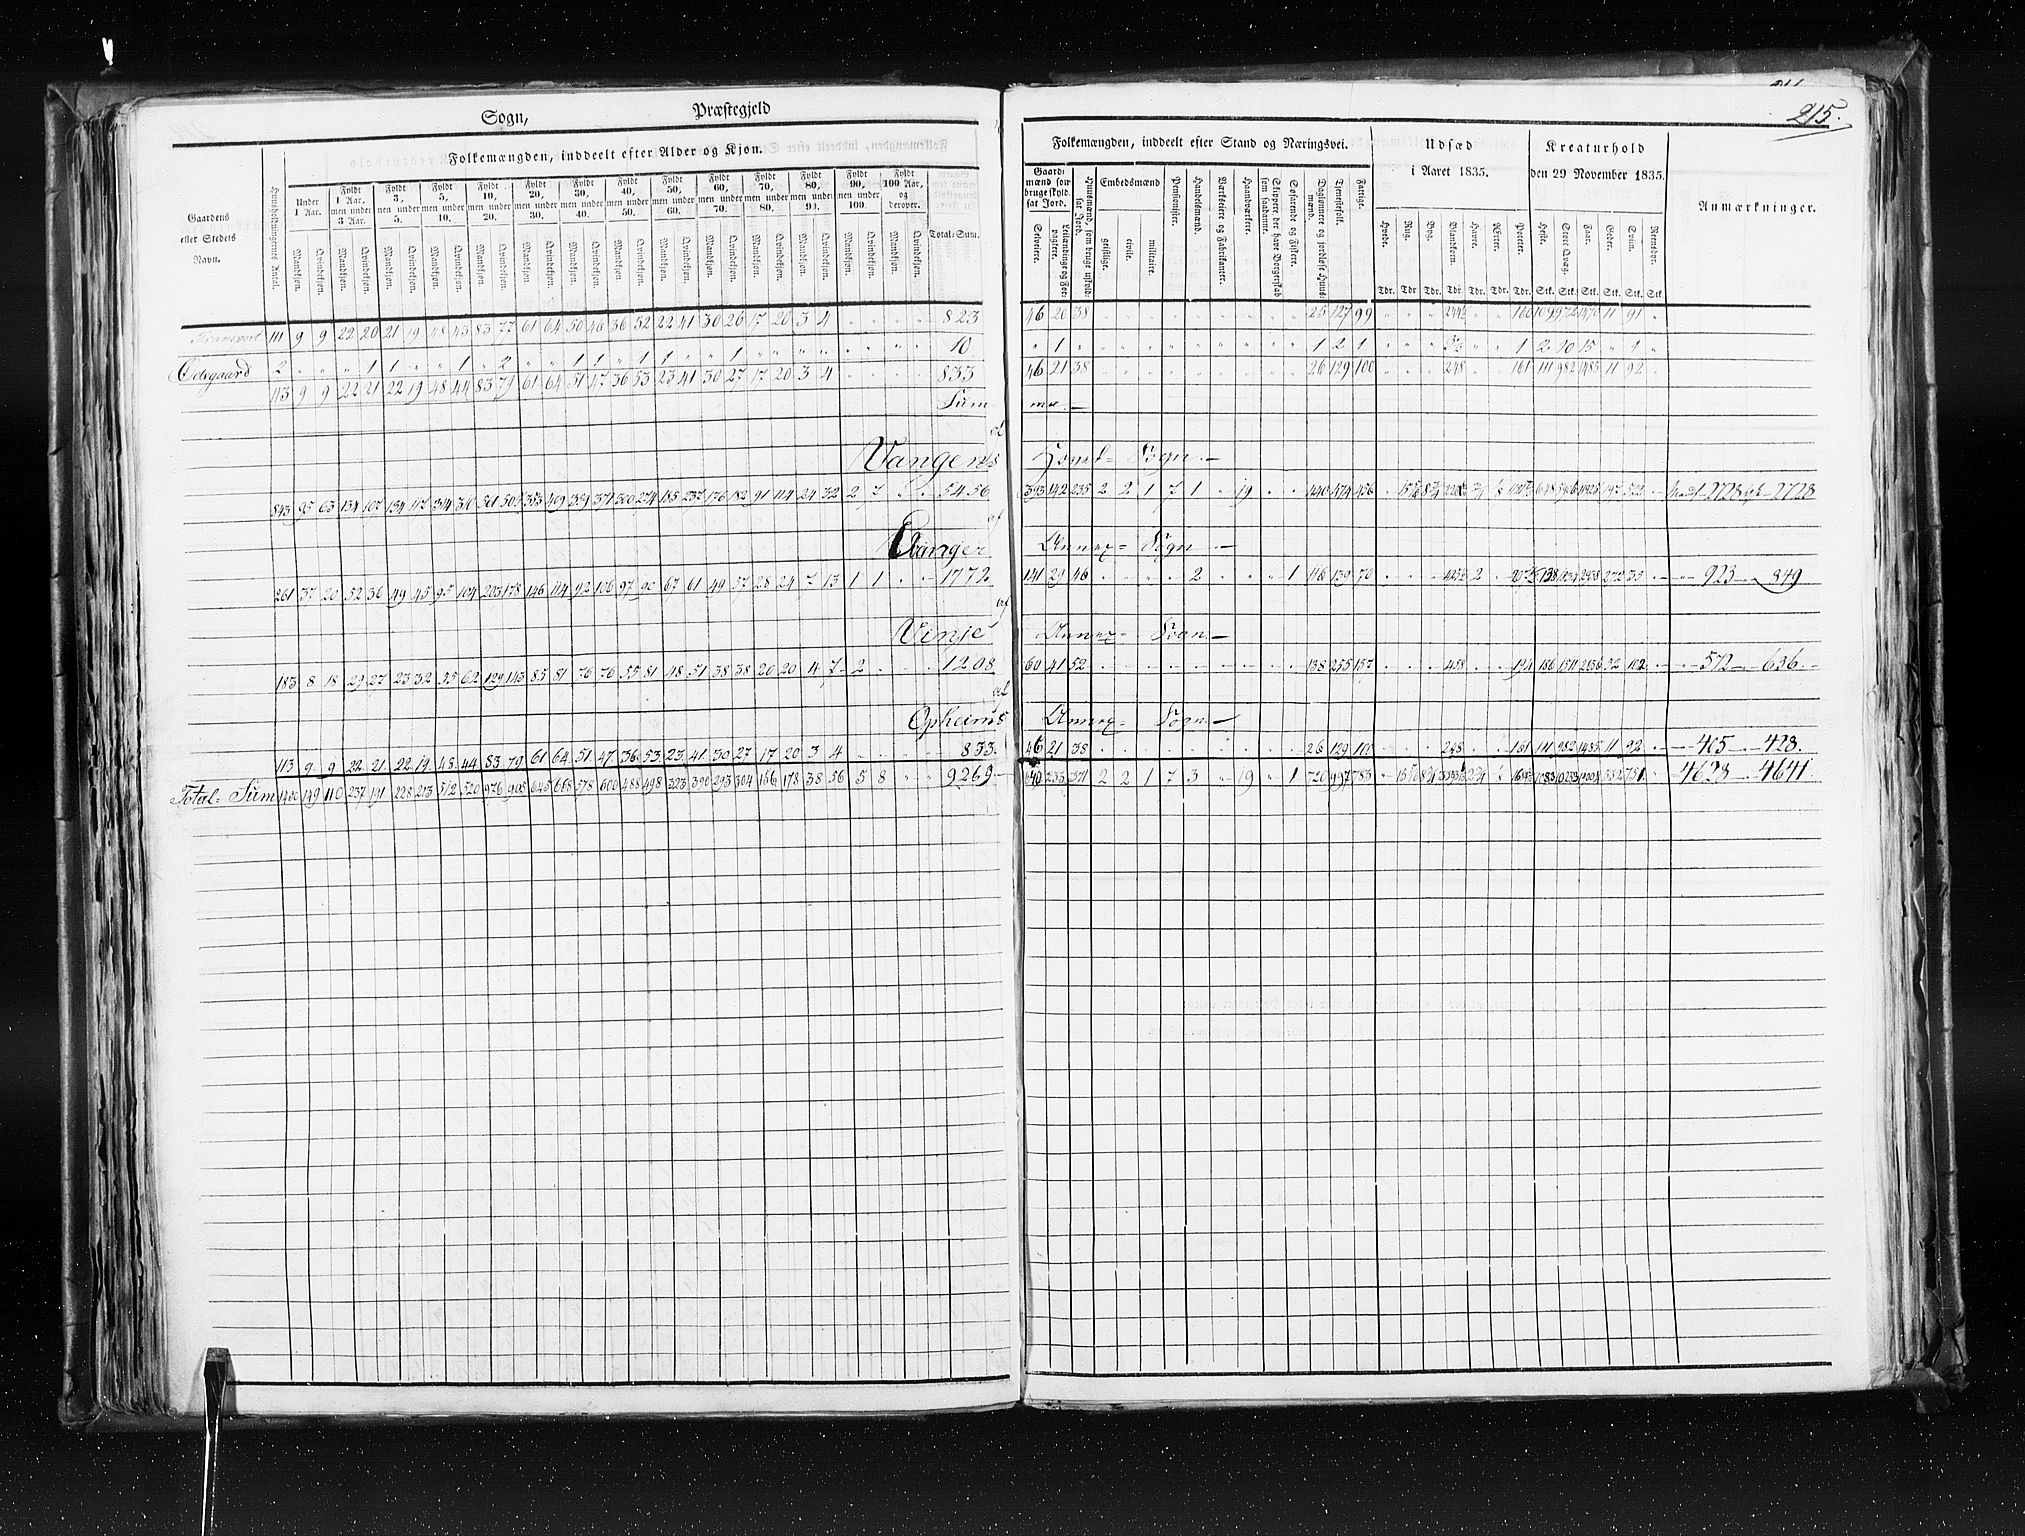 215.
Sogn, Præstegjeld
Folkemængden, inddeelt efter Alder og Kjøn.
Folkemængden, inddeelt efter Stand og Næringsvei.
Udsæd i Aaret 1835.
Kreaturhold den 29 November 1835.
Anmærkninger.
Gaardens eller Stedets Navn.
Huusholdningernes Antal.
Under 1 Aar.
Fyldt 1 Aar, men under 3 Aar.
Fyldt 3, men under 5.
Fyldt 5, men under 10.
Fyldt 10, men under 20.
Fyldt 20, men under 30.
Fyldt 30, men under 40.
Fyldt 40, men under 50.
Fyldt 50, men under 60.
Fyldt 60, men under 70.
Fyldt 70, men under 80.
Fyldt 80, men under 90.
Fyldt 90, men under 100.
Fyldt 100 Aar, og derover.
Mandkjøn. Qvindekjøn.
Total-Sum.
Gaardmænd som bruge skyldsat Jord.
Selveiere.
Leilændinge og Forpagtere.
Huusmænd, som bruge uskyldsat Jord.
Embedsmænd
geistlige. civile. militaire.
Pensionister.
Handelsmænd.
Værkeiere og Fabrikanter.
Haandværkere.
Skippere der have Borgerskab som saadanne.
Søfarende og Fiskere.
Daglønnere og jordløse Huusmænd.
Tjenestefolk.
Fattige.
Hvede. Rug. Byg. Blandkorn. Havre. Ærter. Poteter.
Heste. Stort Qvæg. Faar. Geder. Sviin. Reensdyr.
Tdr. Tdr. Tdr. Tdr. Tdr. Tdr. Tdr. Stk. Stk. Stk. Stk. Stk. Stk.
Transport 111 9 9 22 20 21 19 48 43 83 77 61 64 50 46 36 52 22 41 30 26 17 20 3 4 823 46 20 38 25 127 99 244½ 160 109 972 1470 11 91
2 1 1 1 2 1 1 1 1 1 10 1 1 2 1 3½ 1 2 10 15 1
113 9 9 22 21 22 19 48 44 83 79 61 64 51 47 36 53 23 41 30 27 17 20 3 4 833 46 21 38 26 129 100 248 161 111 982 1485 11 92
Summa
af Vangens Hoved- Sogn
843 95 63 134 107 134 117 314 310 561 505 353 409 359 371 300 274 185 237 176 182 91 114 24 32 2 7 5456 393 142 235 2 2 1 7 1 19 440 474 456 2728 2728
af Evanger Annex- Sogn
261 37 20 52 36 49 45 95 104 203 178 146 114 92 106 97 90 67 61 49 57 28 24 7 13 1 1 1772 141 29 46 2 1 116 139 70 923 849
af Vinje Annex- Sogn
183 8 18 29 27 23 32 55 62 129 143 85 81 76 76 55 81 48 51 38 38 20 20 4 7 2 1208 60 41 52 138 255 157 458 194 186 1511 2136 52 102 572 636
af Opheims Annex- Sogn
113 9 9 22 21 22 19 48 44 83 79 61 64 51 47 36 53 23 41 30 27 17 20 3 4 833 46 21 38 26 129 100 248 161 111 982 1485 11 92 405 428
Total- Sum 1400 149 110 237 191 228 213 512 520 976 905 645 668 578 600 488 498 323 390 293 304 156 178 38 56 5 8 9269 640 233 371 2 2 1 7 3 19 1 720 997 783 4628 4641